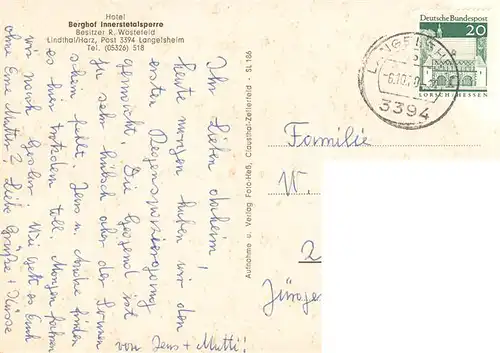 Hotel
Berghof Innerstetalsperre
Besitzer R. Wüstefeld
Lindthal/Harz, Post 3394 Langelsheim
Tel. (05326) 518
Ihr Lieben daheim!
Heute morgen haben wir den
ersten Regenspaziergang
gemacht. Die Gegend ist
sehr hübsch aber der Sonnen
schein fehlt. Jens u. finden
es hier trotzdem toll. Morgen fahren
wir nach Goslar! Wie geht es Euch
ohne Eure Mutter? Liebe Grüße + Küsse
von Jens + Mutti!
Aufnahme u. Verlag Foto-Heß, Clausthal-Zellerfeld - SL 186
Deutsche Bundespost
20
LORSCH/HESSEN
3394
Familie
W.
2
Jürge